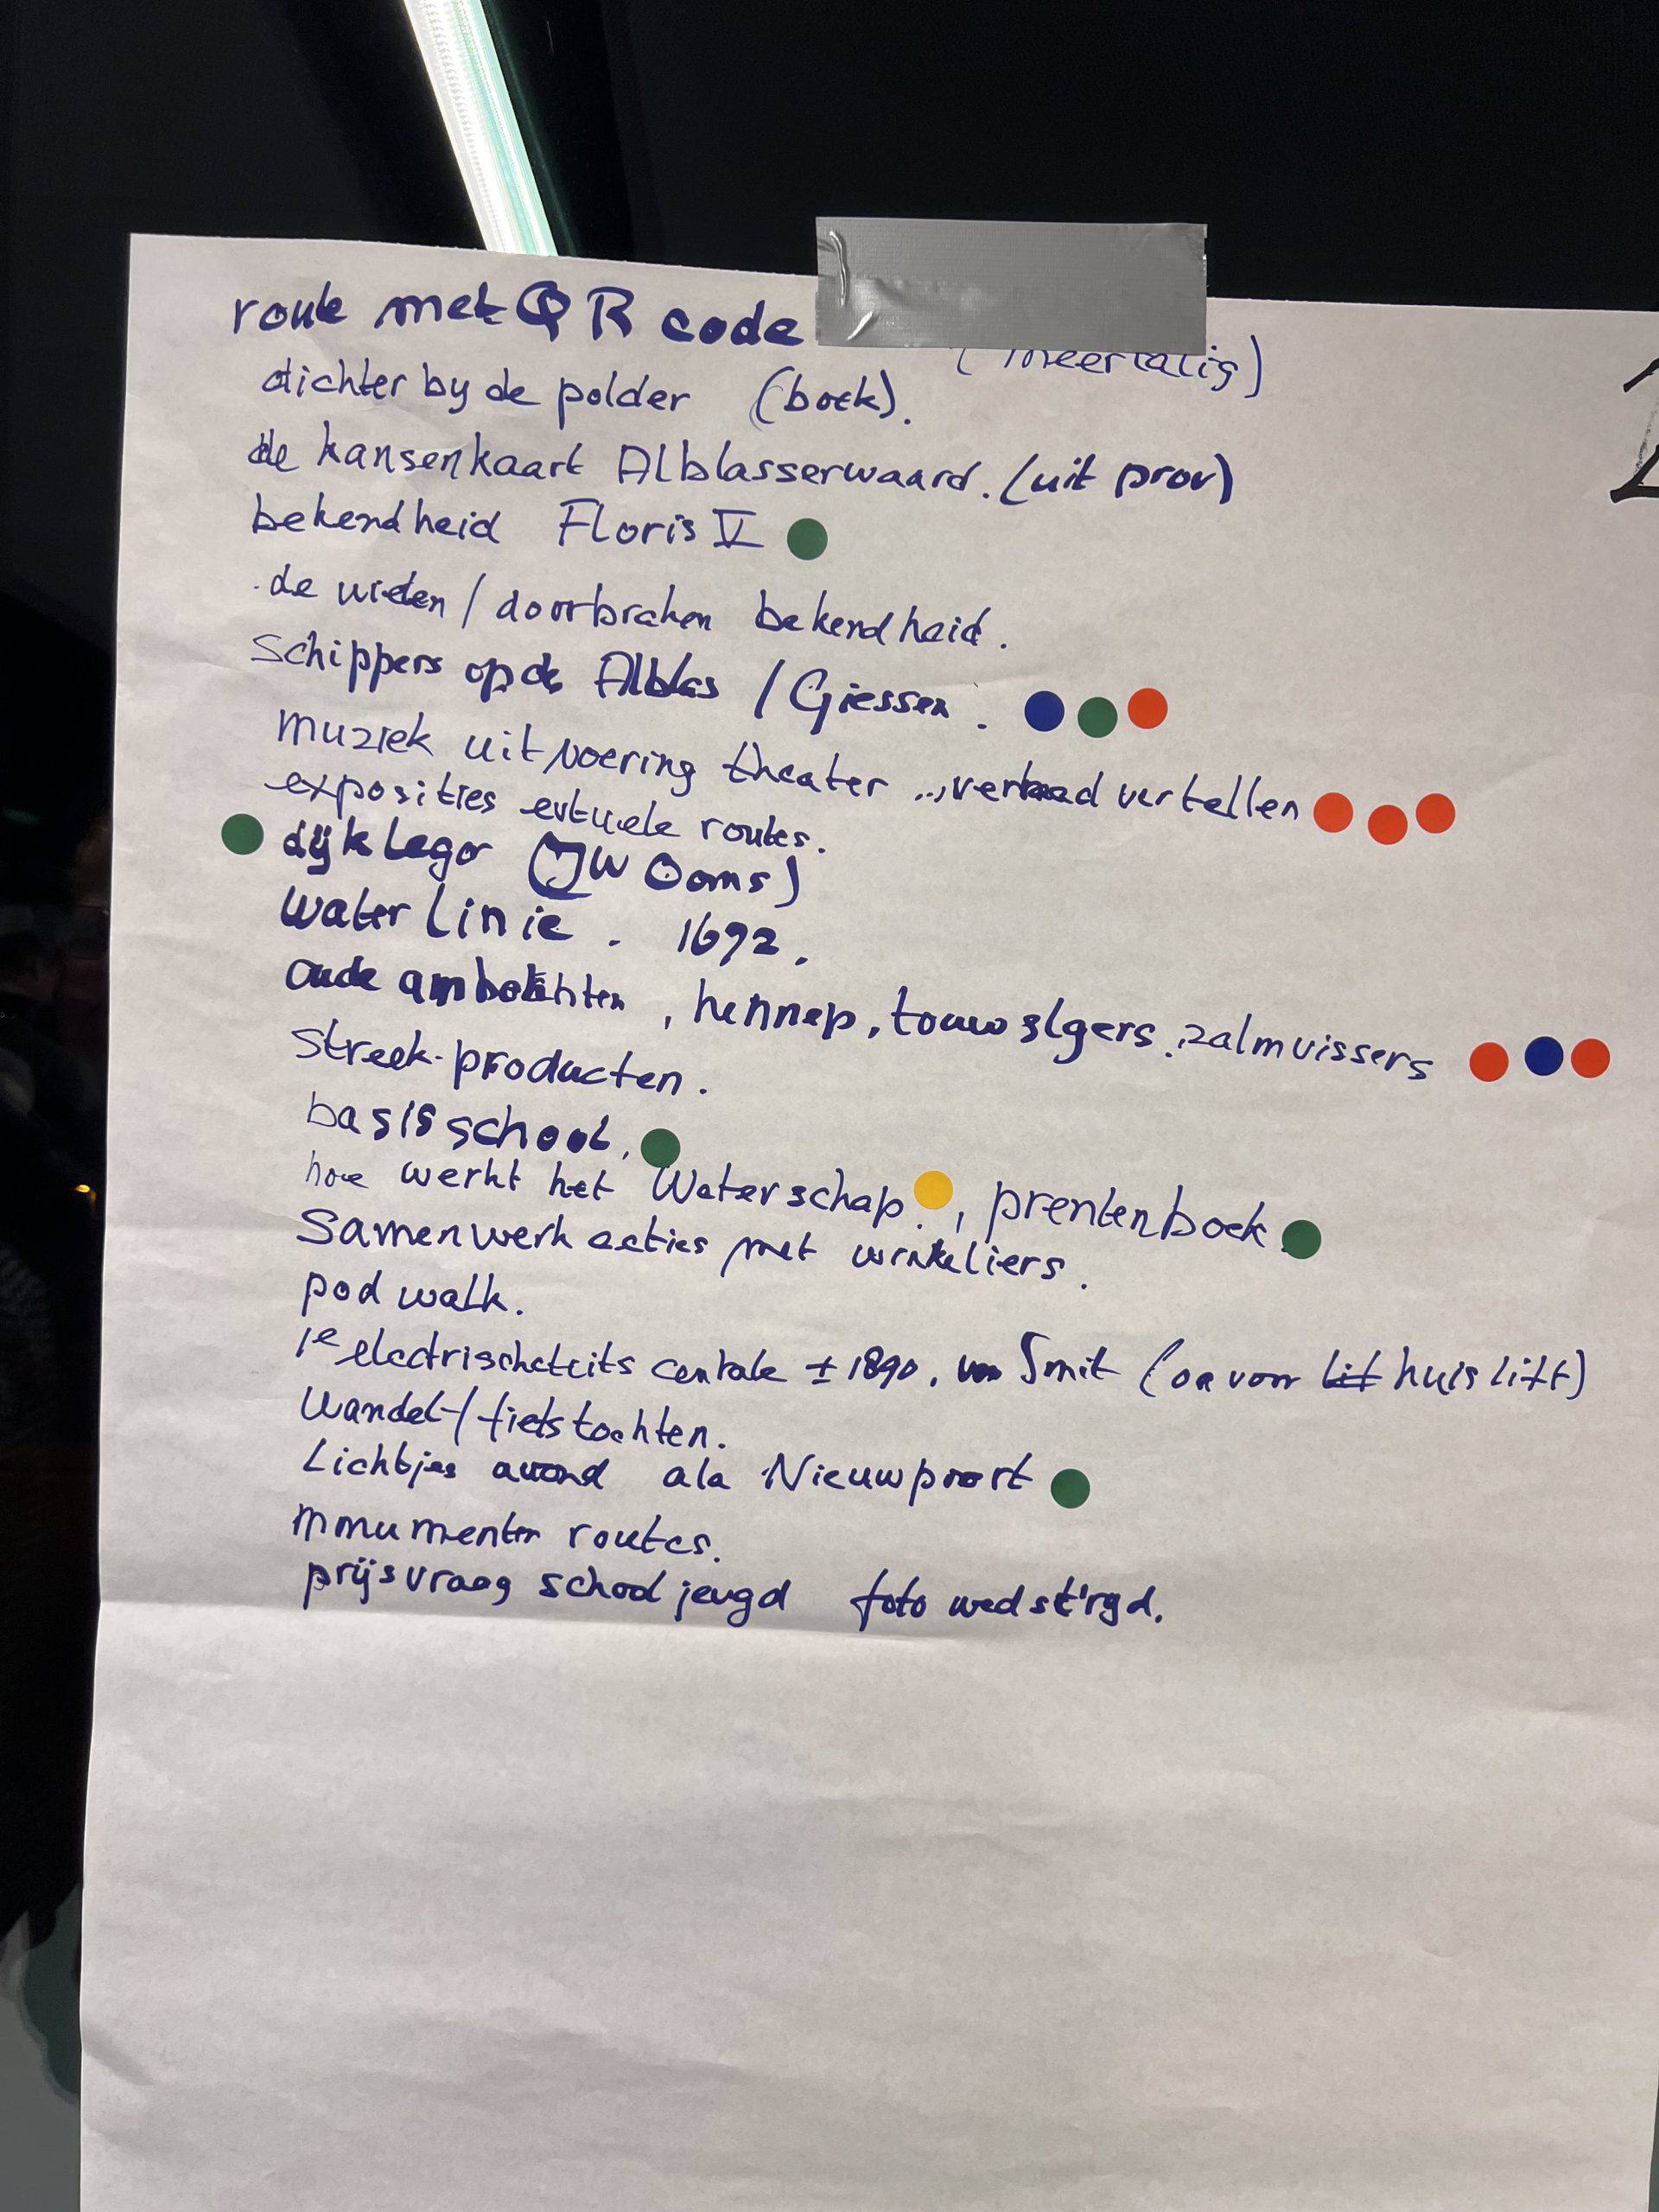 route met QR code
(meertalig)
dichter by de polder (boek).
de kansenkaart Alblasserwaard. (uit prov)
bekendheid Floris V
de wielen / doorbraken bekendheid.
Schippers op de Alblas / Giessen.
muziek uitvoering theater ... verhaal vertellen
exposities evtuele routes.
dijk lego (JW Ooms)
Waterlinie. 1672.
oude ambachten, hennep, touwslgers, zalmvissers
Streek-producten.
basisschool.
hoe werkt het Waterschap., prentenboek.
Samenwerk acties met winkeliers.
pod walk.
1e electriciteits centrale ± 1890, Smit (oa voor lift huislift)
Wandel-/fietstochten.
Lichtjes avond ala Nieuwpoort
monumenten routes.
prijsvraag schooljeugd foto wedstrijd.